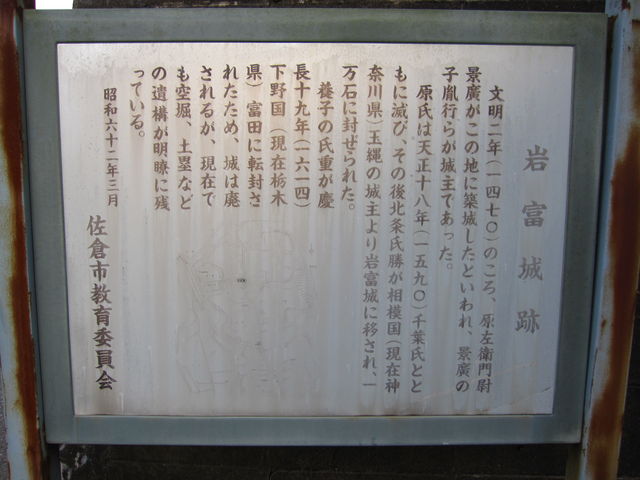 岩富城跡
文明二年(一四七〇)のころ、原左衛門尉
景廣がこの地に築城したといわれ、景廣の
子胤行らが城主であった。
原氏は天正十八年(一五九〇)千葉氏とと
もに滅び、その後北条氏勝が相模国(現在神
奈川県)玉縄の城主より岩富城に移され、一
万石に封ぜられた。
養子の氏重が慶
長十九年(一六一四)
下野国(現在栃木
県)富田に転封さ
れたため、城は廃
されるが、現在で
も空堀、土塁など
の遺構が明瞭に残
っている。
昭和六十二年三月
佐倉市教育委員会